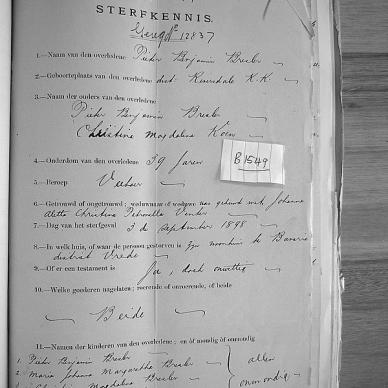 STERFKENNIS.
Gereg No 12837
1.—Naam van den overledene: Pieter Benjamin Bresler
2.—Geboorteplaats van den overledene dist: Riversdale K.K.
3.—Naam der ouders van den overledene
Pieter Benjamin Bresler
Christina Magdalena Koen
4.—Ouderdom van den overledene 39 Jaren
B 1549
5.—Beroep Veeboer
6.—Getrouwd of ongetrouwd; weduwnaar of weduwe van gehuwd met Johanna
Aletta Christina Petronella Venter
7.—Dag van het sterfgeval 3 de September 1898
8.—In welk huis, of waar de persoon gestorven is zyn woonhuis te Bavaria
distrikt Vrede
9.—Of er een testament is Ja, doch onwettig
10.—Welke goederen nagelaten; roerende of onroerende, of beide
Beide
11.—Namen der kinderen van den overledene; en òf mondig òf onmondig
1. Pieter Benjamin Bresler
2. Maria Johanna Margaretha Bresler
Magdalena Bresler
allen
onmondig